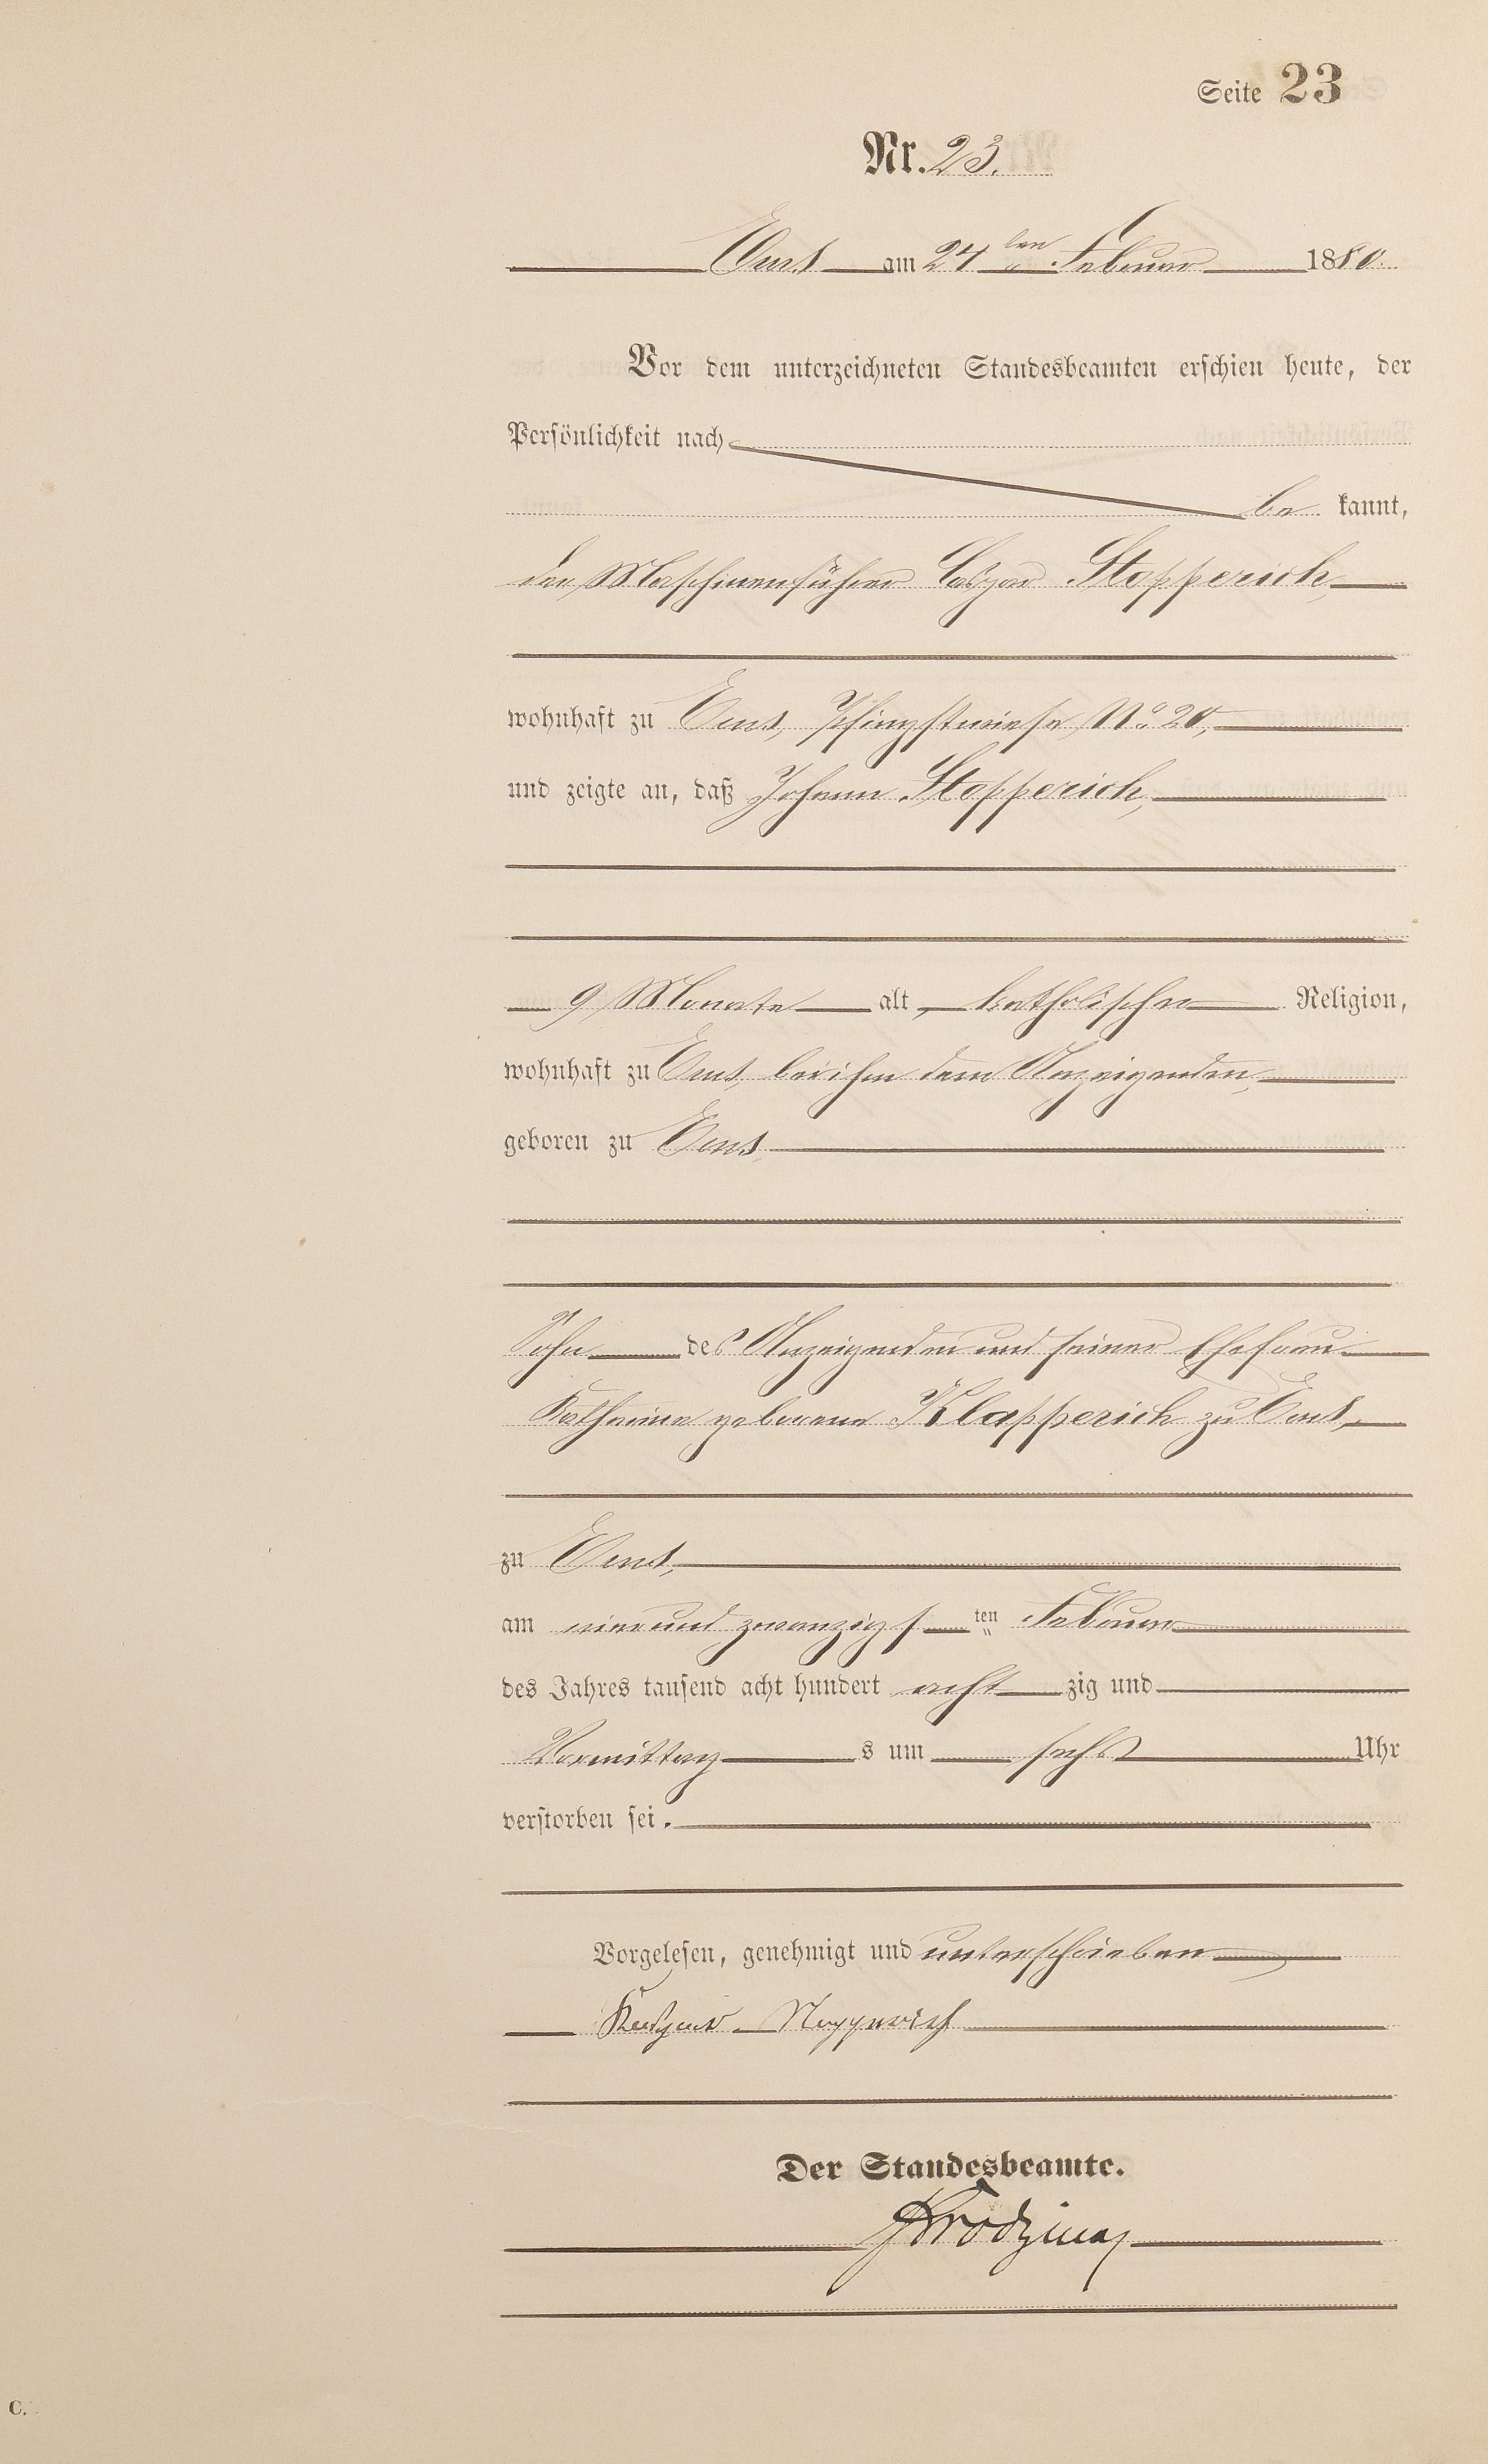 Seite 23
Nr. 23.
Ems am 24ten Februar 1880.
Vor dem unterzeichneten Standesbeamten erschien heute, der
Persönlichkeit nach
be kannt,
der Maschinenführer Caspar Stopperich,
wohnhaft zu Ems, Pfingstwiese No 20,
und zeigte an, daß Johann Stopperich,
9 Monate alt, katholischer Religion,
wohnhaft zu Ems, bei ihm dem Anzeigenden,
geboren zu Ems,
Sohn des Anzeigenden und seiner Ehefrau
Katharina geborene Klapperich zu Ems,
zu Ems,
am vier und zwanzigst ten Februar
des Jahres tausend acht hundert acht zig und
Vormittag s um sechs Uhr
verstorben sei.
Vorgelesen, genehmigt und unterschrieben
Kaspar
Der Standesbeamte.
C.